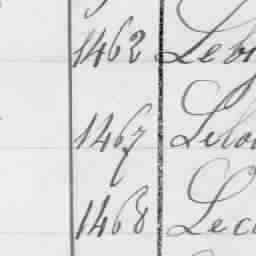 1462 Leb
1467 Lebo
1468 Lec